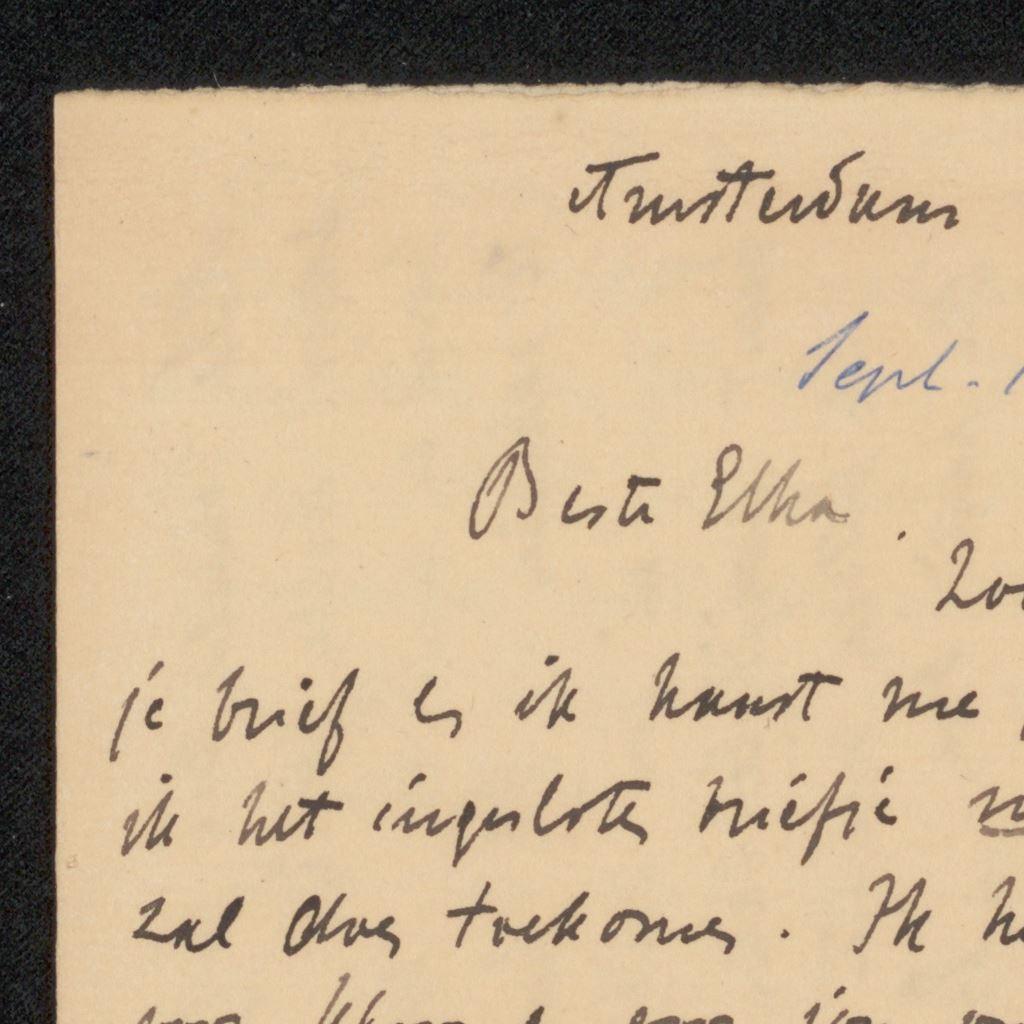 Amsterdam
Sept. 1
Beste Elka.
Zoo
je brief en ik haast me
ik het ingesloten briefje
zal doen toekomen. Ik he
voor